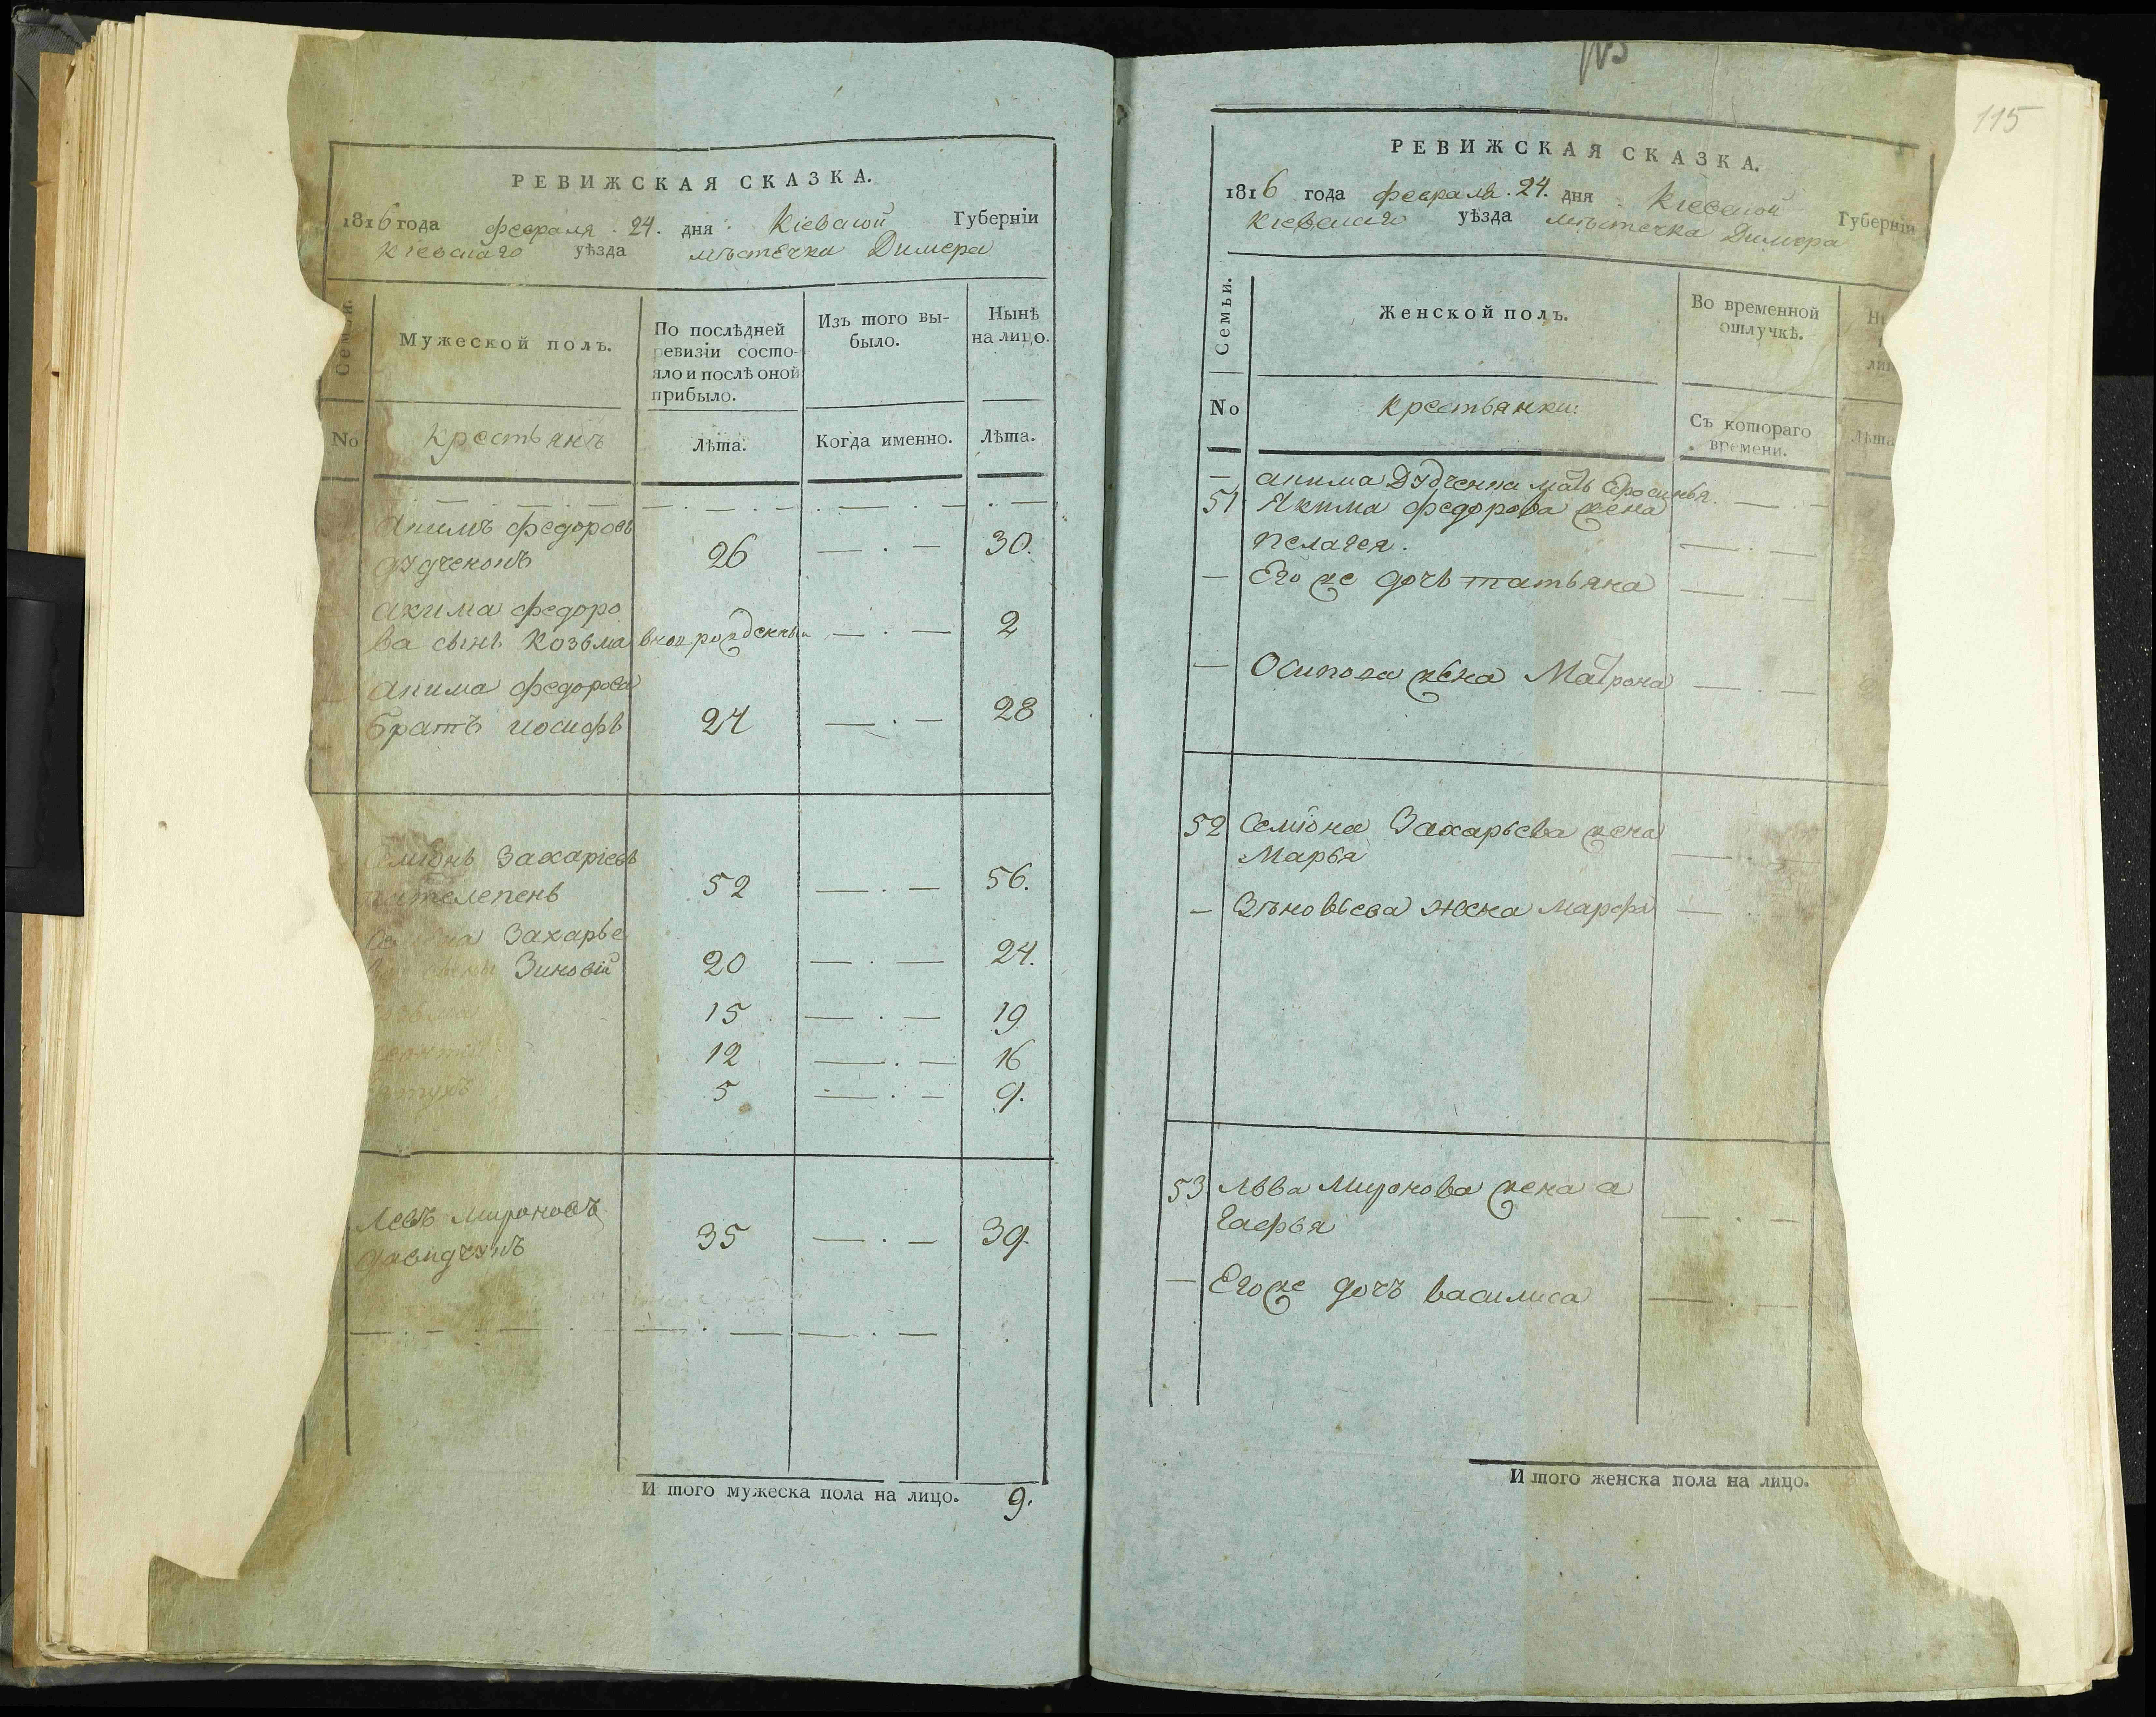 РЕВИЖСКАЯ СКАЗКА.
1816 года февраля 24. дня Кіевской Губерніи
Кіевскаго уѣзда мѣстечка Димера
Семьи.
Мужеской полъ.
По послѣдней ревизіи состояло и послѣ оной прибыло.
Изъ того выбыло.
Нынѣ на лицо.
No
крестьянъ
Лѣта.
Когда именно.
Лѣта.
Акимъ федоровъ
дудченокъ 26 30.
акима федоро
ва сынъ Козьма вновь рожденный 2
акима федорова
братъ иосифъ 24 28
Семіонъ Захаріевъ
пателепень 52 56.
Захарье
Зиновій 20 24.
15 19
12 16
5 9.
Левъ Мироновъ
давидчукъ 35 39.
И того мужеска пола на лицо. 9.
115
РЕВИЖСКАЯ СКАЗКА.
1816 года февраля 24. дня Кіевской Губерніи
Кіевскаго уѣзда мѣстечка Димера
Семьи.
Женской полъ.
Во временной отлучкѣ.
No
крестьянки:
Съ котораго времени.
Лѣта
акима Дудченка мать Ефросинья.
51 Якима федорова жена
пелагея.
Его же дочь татьяна
Осипова жена Матрона
52 Семіона Захарьева жена
Марья
Зѣновьева жена марфа
53 Льва Миронова жена а
гафья
Его же дочъ василиса
И того женска пола на лицо.